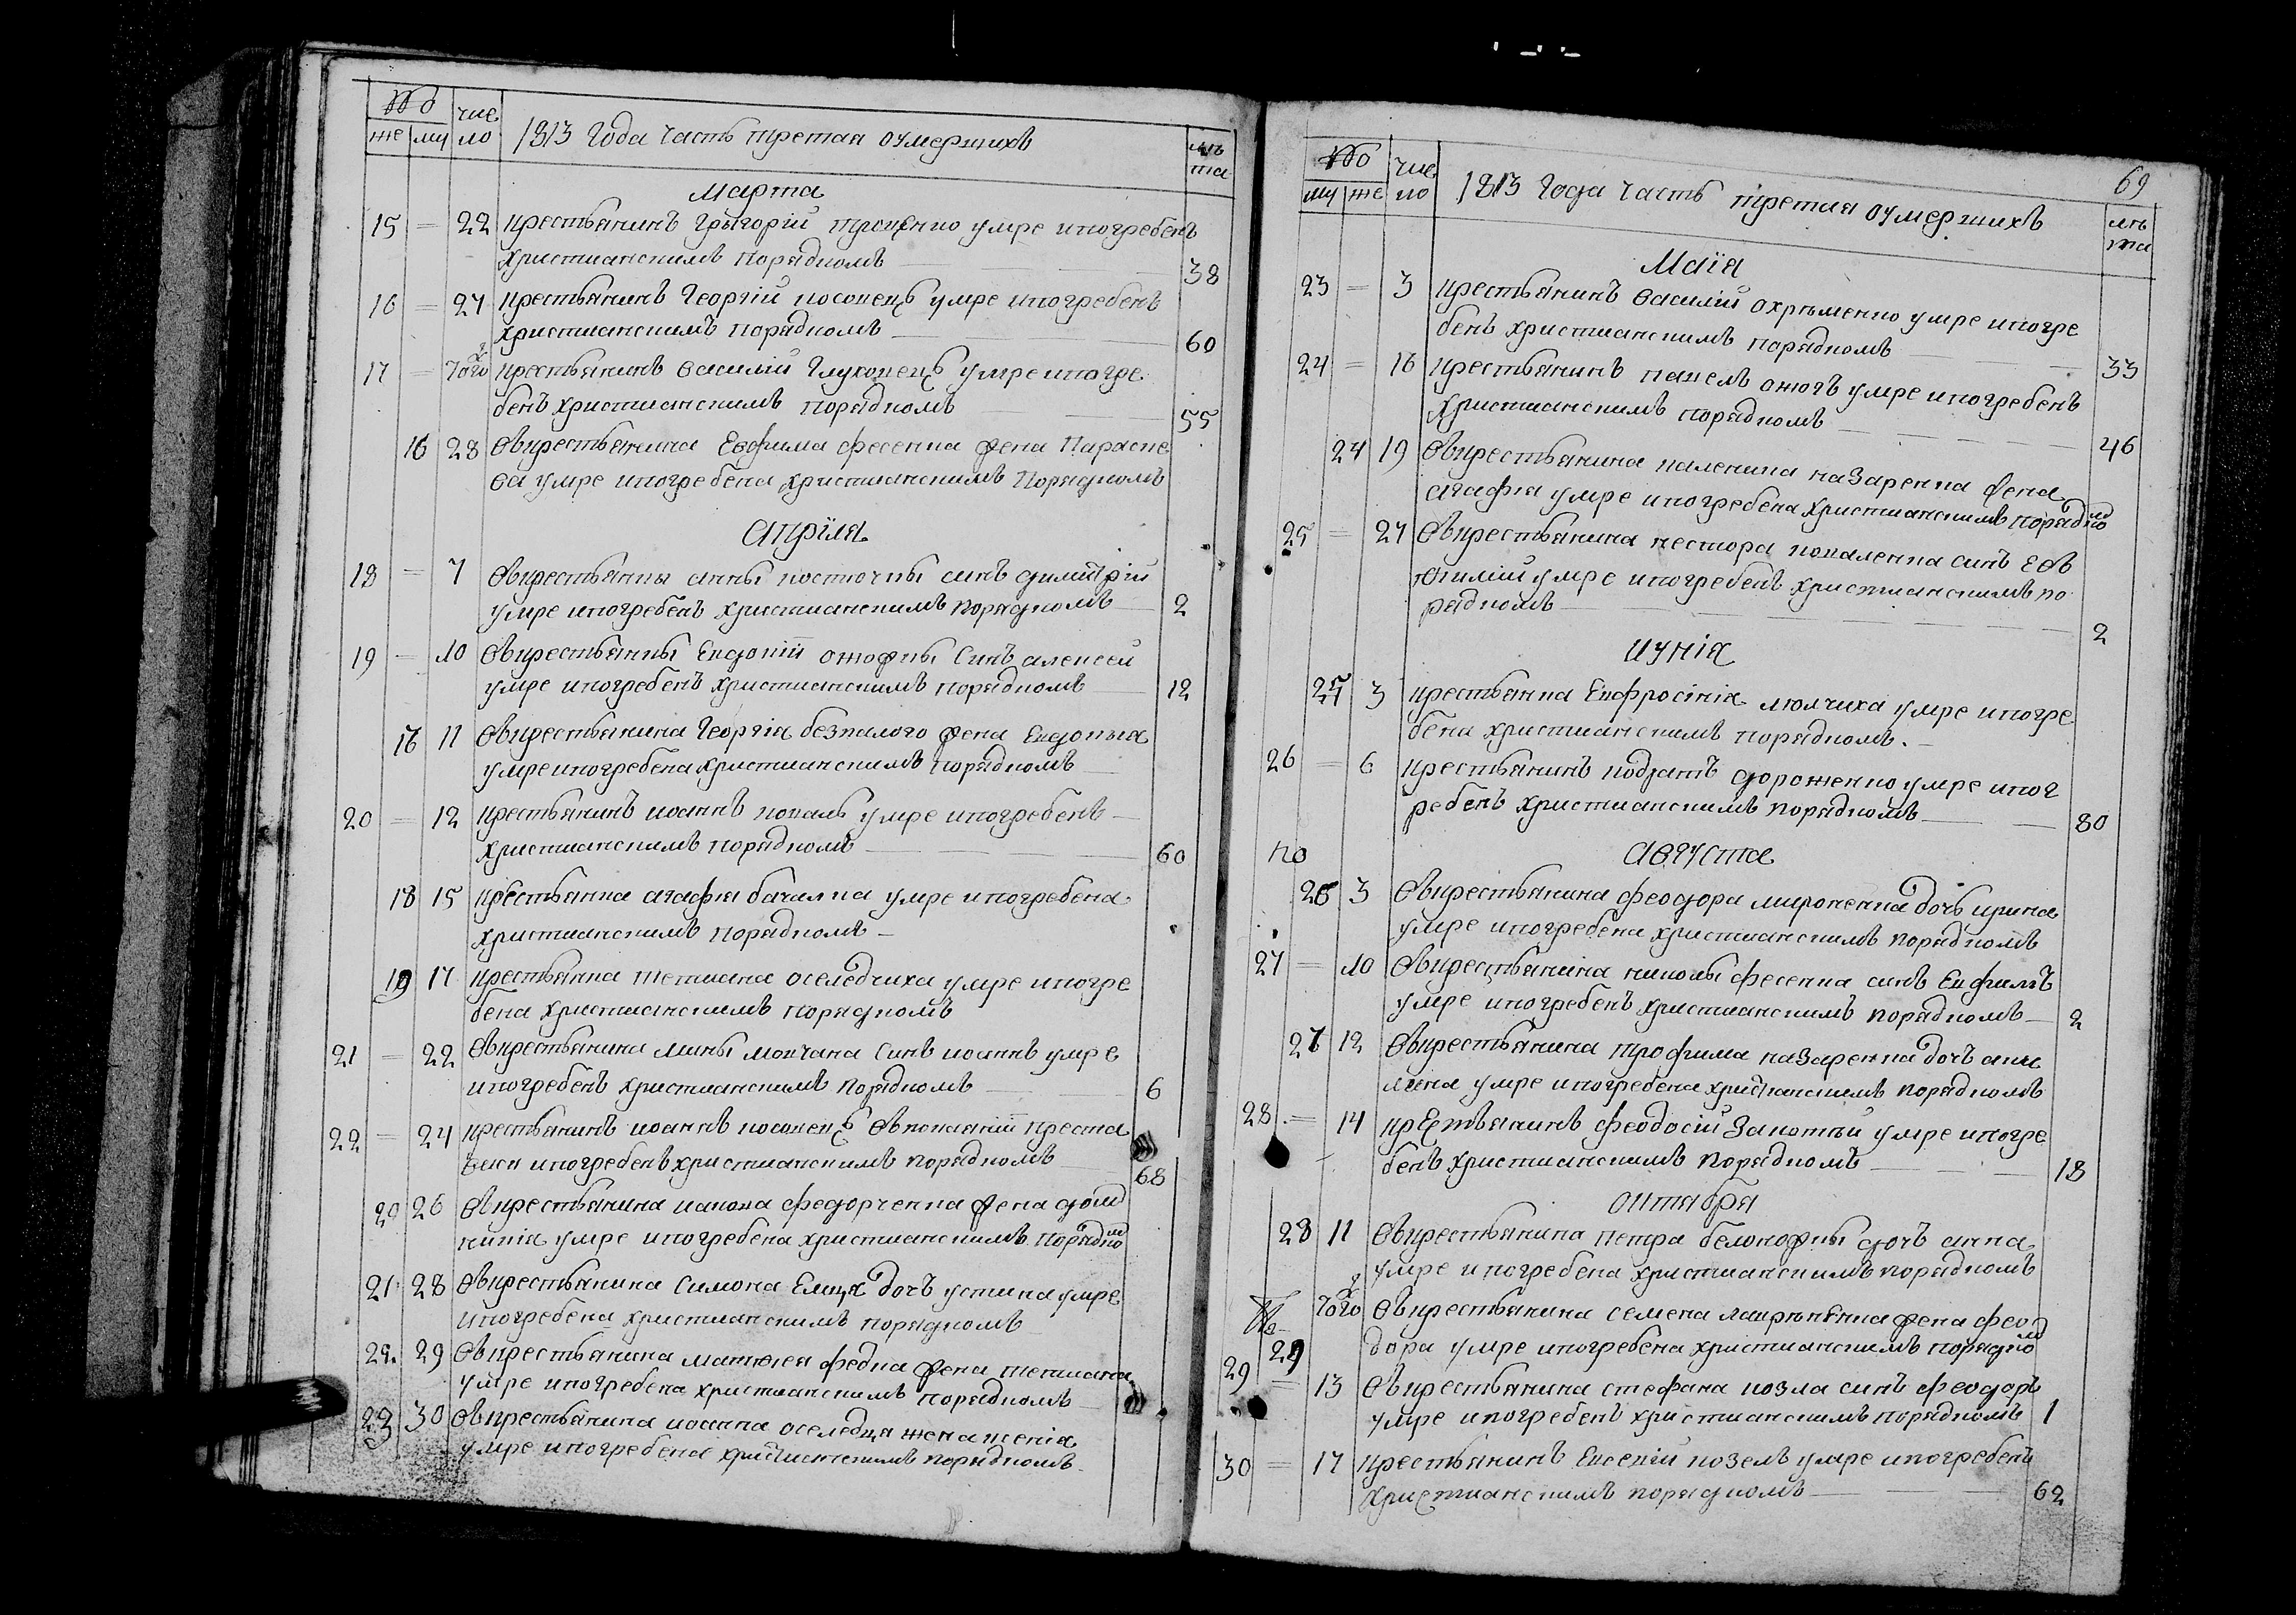 №
же му число 1813 Года Часть третая оумершихъ лѣта
Марта
15 = 22 крестьянинъ Грыгорій Троценко умре ипогребенъ
христианскимъ порядкомъ 38
16 = 27 крестьянинъ Георгій косовецъ умре ипогребенъ
христианскимъ порядкомъ 60
17 = Тогож крестьянинъ василій Глуховецъ умре ипогре
бенъ христианскимъ порядкомъ 55
16 28 Ѳкрестьянина Евфима фесенка жена Параске
ва умре ипогребена христианскимъ Порядкомъ
Апріля
18 = 7 Ѳкрестьянки анны синъ димитрій
умре ипогребенъ христианскимъ порядкомъ 2
19 = 10 Ѳкрестьянки Евдокіи Синъ алексей
умре ипогребенъ христианскимъ порядкомъ 12
17 11 Ѳкрестьянина Георгія безпалого жена Евдокиа
умре ипогребена христианскимъ порядкомъ
20 = 12 крестьянинъ иоаннъ коваль умре ипогребенъ
христианскимъ порядкомъ 60
18 15 крестьянка агафия умре ипогребена
христианскимъ порядкомъ
19 17 крестьянка тетиана оселедчиха умре ипогре
бена христианскимъ порядкомъ
21 = 22 Ѳкрестьянина мины мовчана Синъ иоаннъ умре
ипогребенъ христианскимъ порядкомъ 6
22 = 24 крестьянинъ иоаннъ косовецъ Ѳвпокаяніи преста
вися ипогребенъ христианскимъ порядкомъ 68
20 26 Ѳкрестьянина иакова федорченка жена дом
никія умре ипогребена христианскимъ порядком
21 28 Ѳкрестьянина Симона Емца дочъ устина умре
ипогребена христианскимъ порядкомъ
22 29 Ѳкрестьянина матѳея федка жена тетиана
умре ипогребена христианскимъ порядкомъ
23 30 Ѳкрестьянина иоанна оселедця жена ксенія
умре ипогребена христианскимъ порядкомъ
69
№
му же число 1813 Года Часть третая оумершихъ лѣта
Маія
23 = 3 крестьянинъ василій охрѣменко умре ипогре
бенъ христианскимъ порядкомъ 33
24 = 16 крестьянинъ павелъ умре ипогребенъ
христианскимъ порядкомъ 46
24 19 Ѳкрестьянина каленика назаренка жена
агафия умре ипогребена христианскимъ порядком
25 = 27 Ѳкрестьянина нестора коваленка синъ Евѳ
умре ипогребенъ христианскимъ по
рядкомъ 2
иунія
25 3 крестьянка Евфросінія умре ипогре
бена христианскимъ порядкомъ.
26 = 6 крестьянинъ кодратъ дорошенко умре ипог
ребенъ христианскимъ порядкомъ 80
по Августа
26 3 Ѳкрестьянина феодора мироненка дочь ирина
умре ипогребена христианскимъ порядкомъ
27 = 10 Ѳкрестьянина николы фесенка синъ Евфимъ
умре ипогребенъ христианскимъ порядкомъ 2
27 12 Ѳкрестьянина трофима назаренка дочъ аки
лина умре ипогребена христианскимъ порядкомъ
28 = 14 крестьянинъ феодосій Западній умре ипогре
бенъ христианскимъ порядкомъ 18
октября
28 11 Ѳкрестьянина петра дочъ анна
умре ипогребена христианскимъ порядкомъ
29 Тогож Ѳкрестьянина семена жена фео
дора умре ипогребена христианскимъ порядком
29 = 13 Ѳкрестьянина стефана козла синъ феодоръ
умре ипогребенъ христианскимъ порядкомъ 1
30 = 17 крестьянинъ Евсевій козелъ умре ипогребенъ
христианскимъ порядкомъ 62